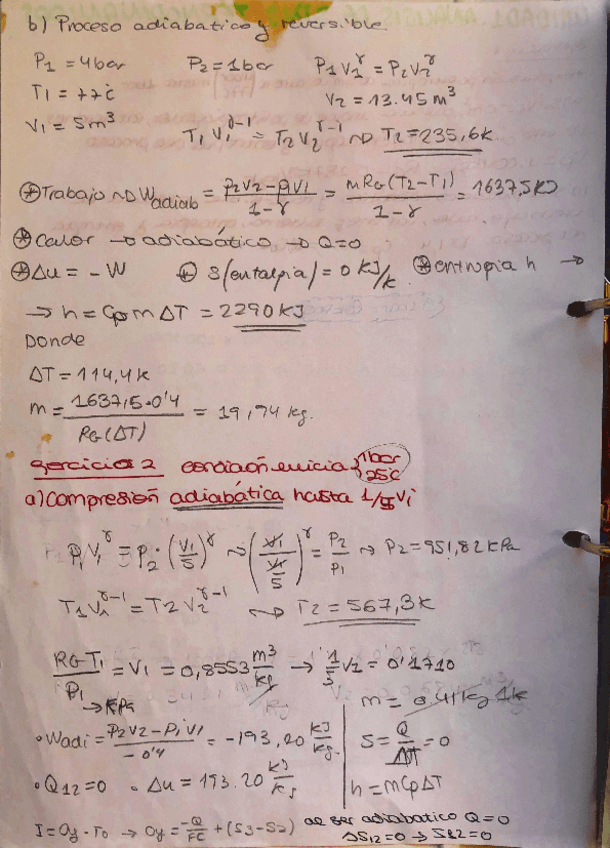 b) Proceso adiabatico y reversible
P1 = 4bar P2 = 1bar P1V1^γ = P2V2^γ
T1 = 77ċ V2 = 13.45 m³
V1 = 5m³ T1 V1^γ-1 = T2 V2^γ-1 ~> T2=235,6k
⊛Trabajo ~> Wadiab = (P2V2-P1V1)/(1-γ) = (mRG(T2-T1))/(1-γ) = 1637,5KJ
⊛Calor → adiabático → Q=0
⊛Δu = -W ⊛ S(entalpia) = 0 kJ/k ⊛entropia h →
→ h = Cp m ΔT = 2290 KJ
Donde
ΔT = 114,4k
m = (1637,5·0'4)/(RG(ΔT)) = 19,94 kg.
ejercicio 2 condiación inicial {1bar 25ċ
a) Compresión adiabática hasta 1/5 Vi
P1V1^γ = P2·(V1/5)^γ ~> (V1/(V1/5))^γ = P2/P1 ~> P2 = 951,82 kPa
T1V1^γ-1 = T2 V2^γ-1 ~> T2 = 567,3k
RGT1/P1 = V1 = 0,8553 m³/kg → 1/5 V2 = 0'1710
→ KPa m = 0,41kg 1k
• Wadi = (P2V2-P1V1)/(-0'4) = -193,20 KJ/kg. S = Q/ΔT = 0
• Q12=0 • Δu = 193.20 KJ/kg h = mCpΔT
I = σy · T0 → σy = -Q/FC + (S3-S2) al ser adiabatico Q=0
ΔS12=0 → S12=0